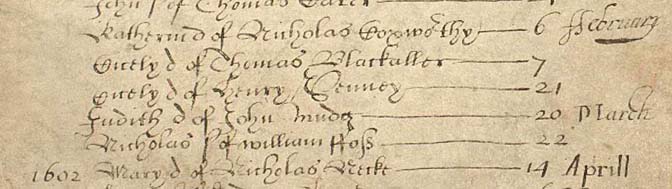 John s of Thomas
Katherin d of Nicholas Coxworthy 6 ffebruary
Cicely d of Thomas Blackaller 7
Cicely d of Henry Senney 21
Judith d of John Mudg 20 March
Nicholas s of william ffoss 22
1602 Mary d of Nicholas Necke 14 Aprill